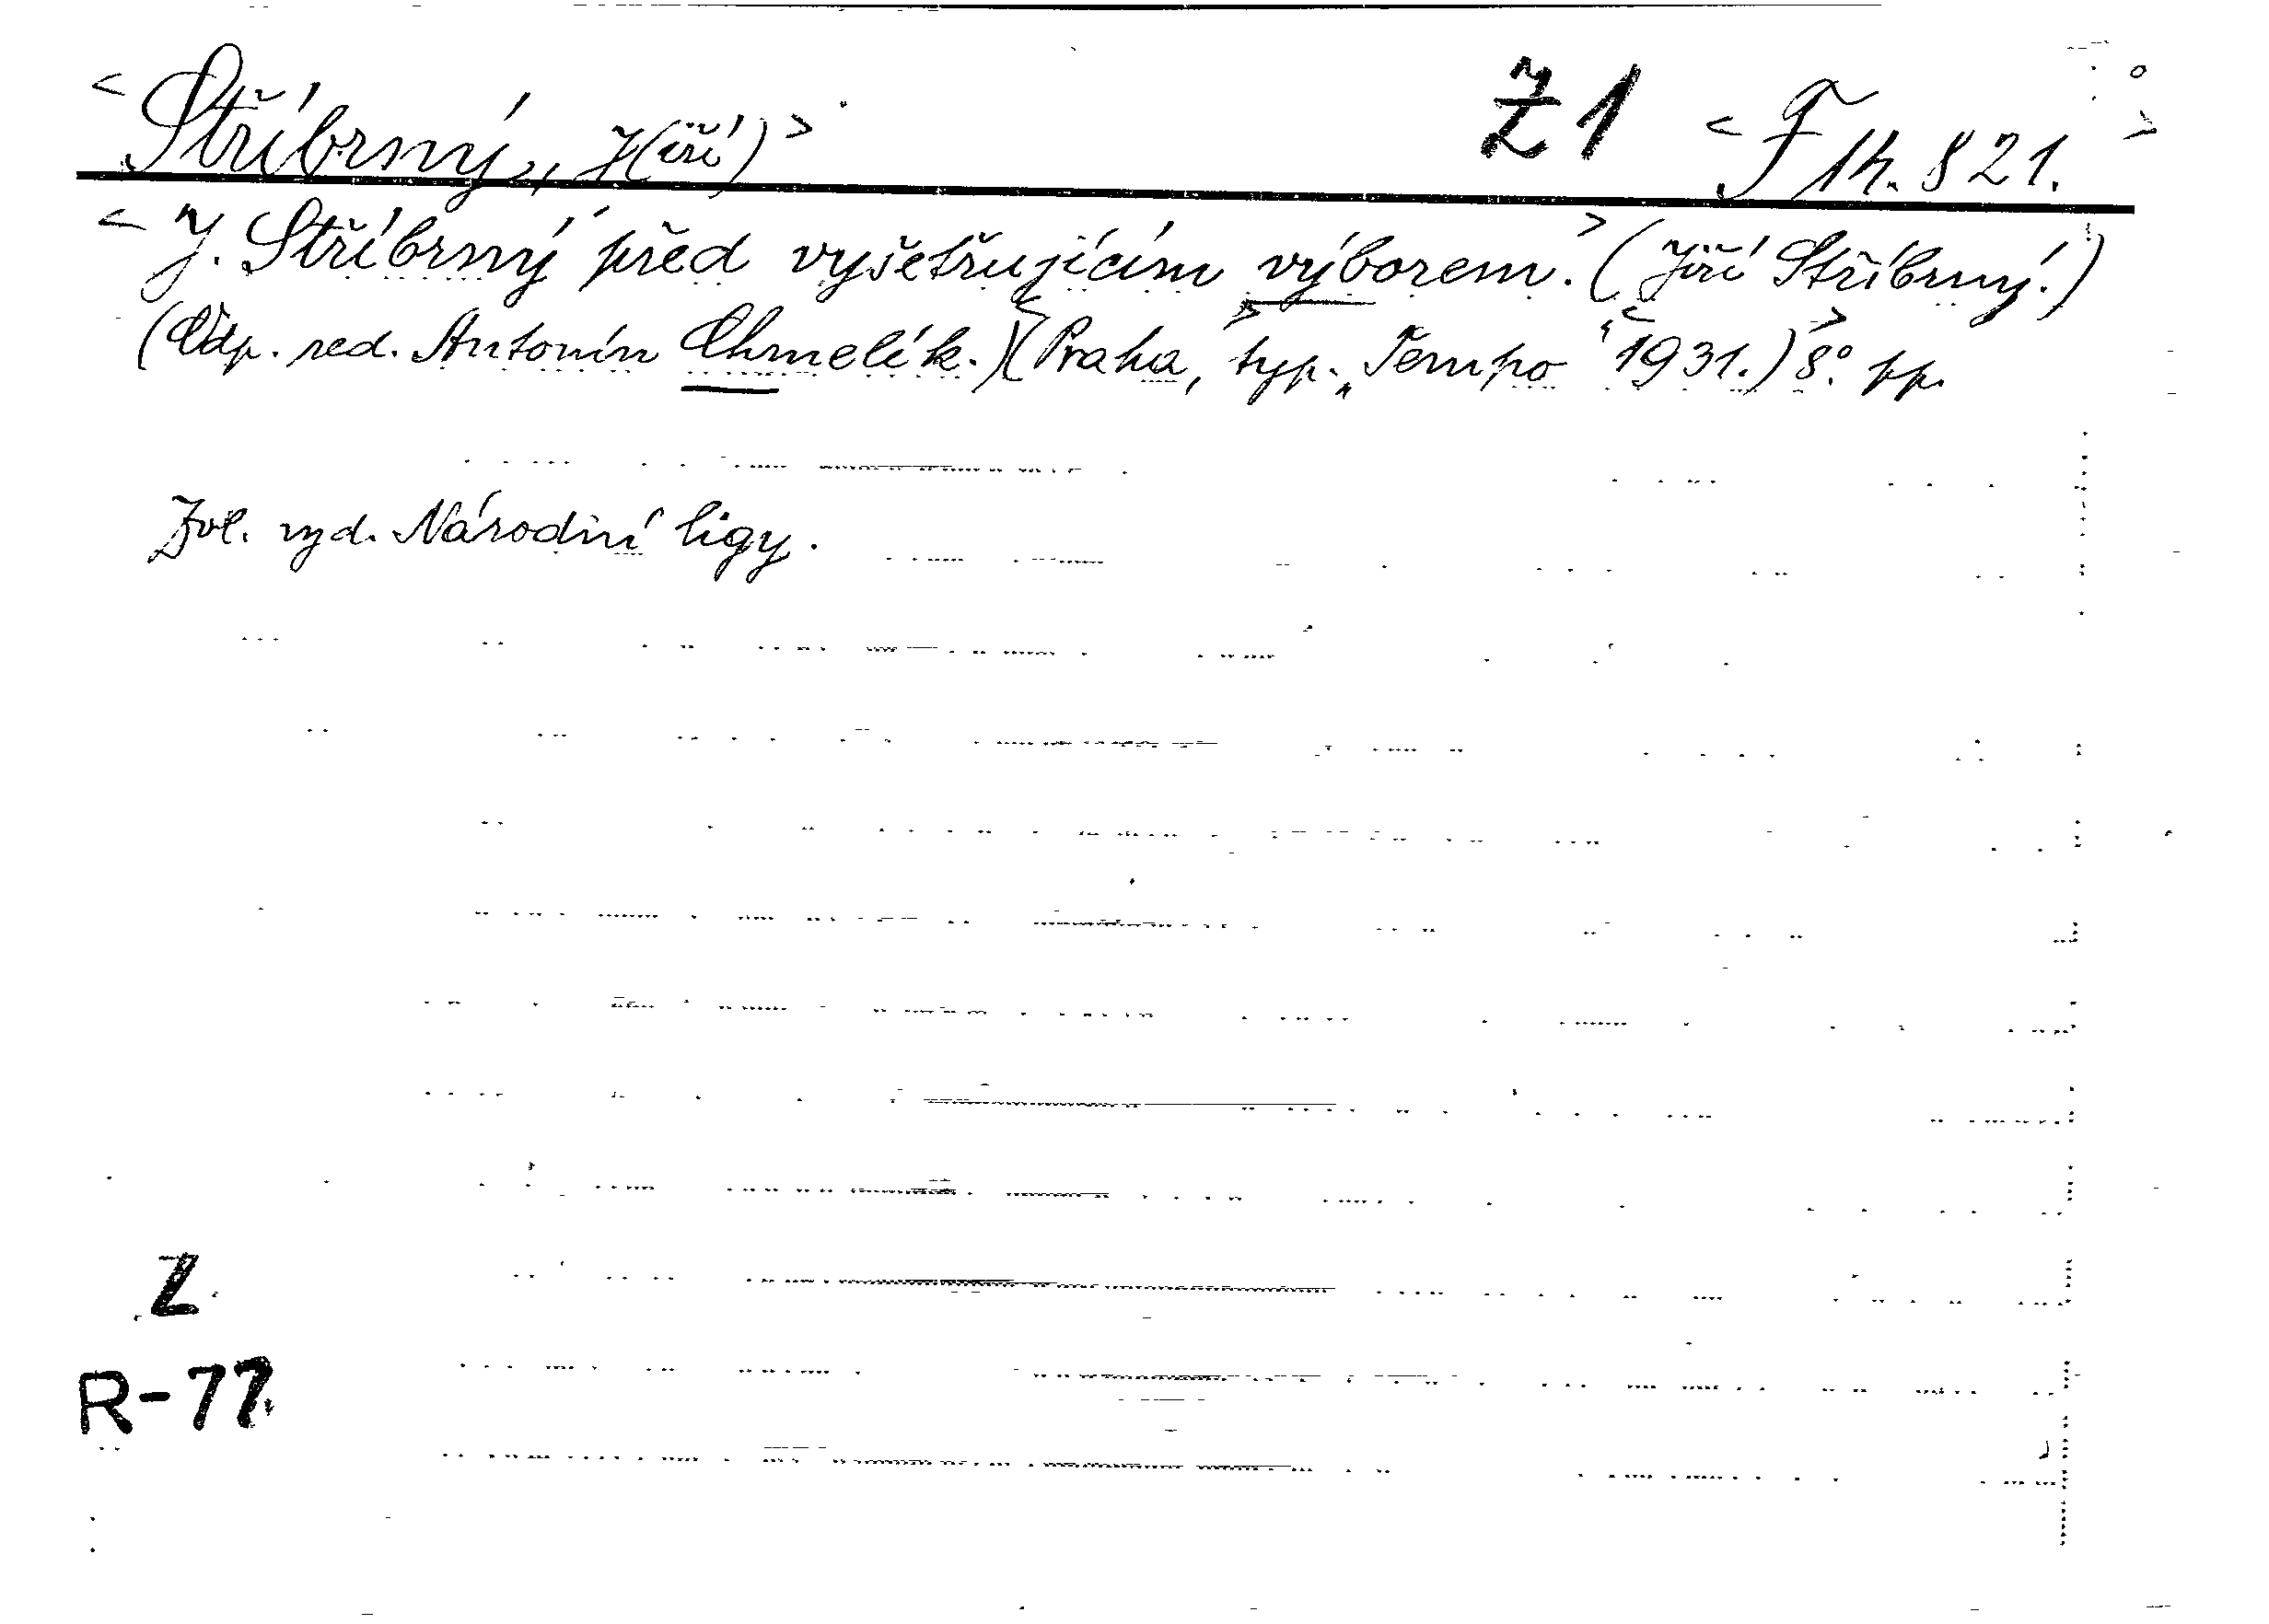 < Stříbrný, J(iří) > Ž1 < F 14.821. >
< J. Stříbrný před vyšetřujícím výborem. > (Jiří Stříbrný.)
(Odp. red. Antonín Chmelík.) (Praha, typ. „Tempo“ 1931.) 8° pp.
Zvl. vyd. Národní ligy.
Z
R-77